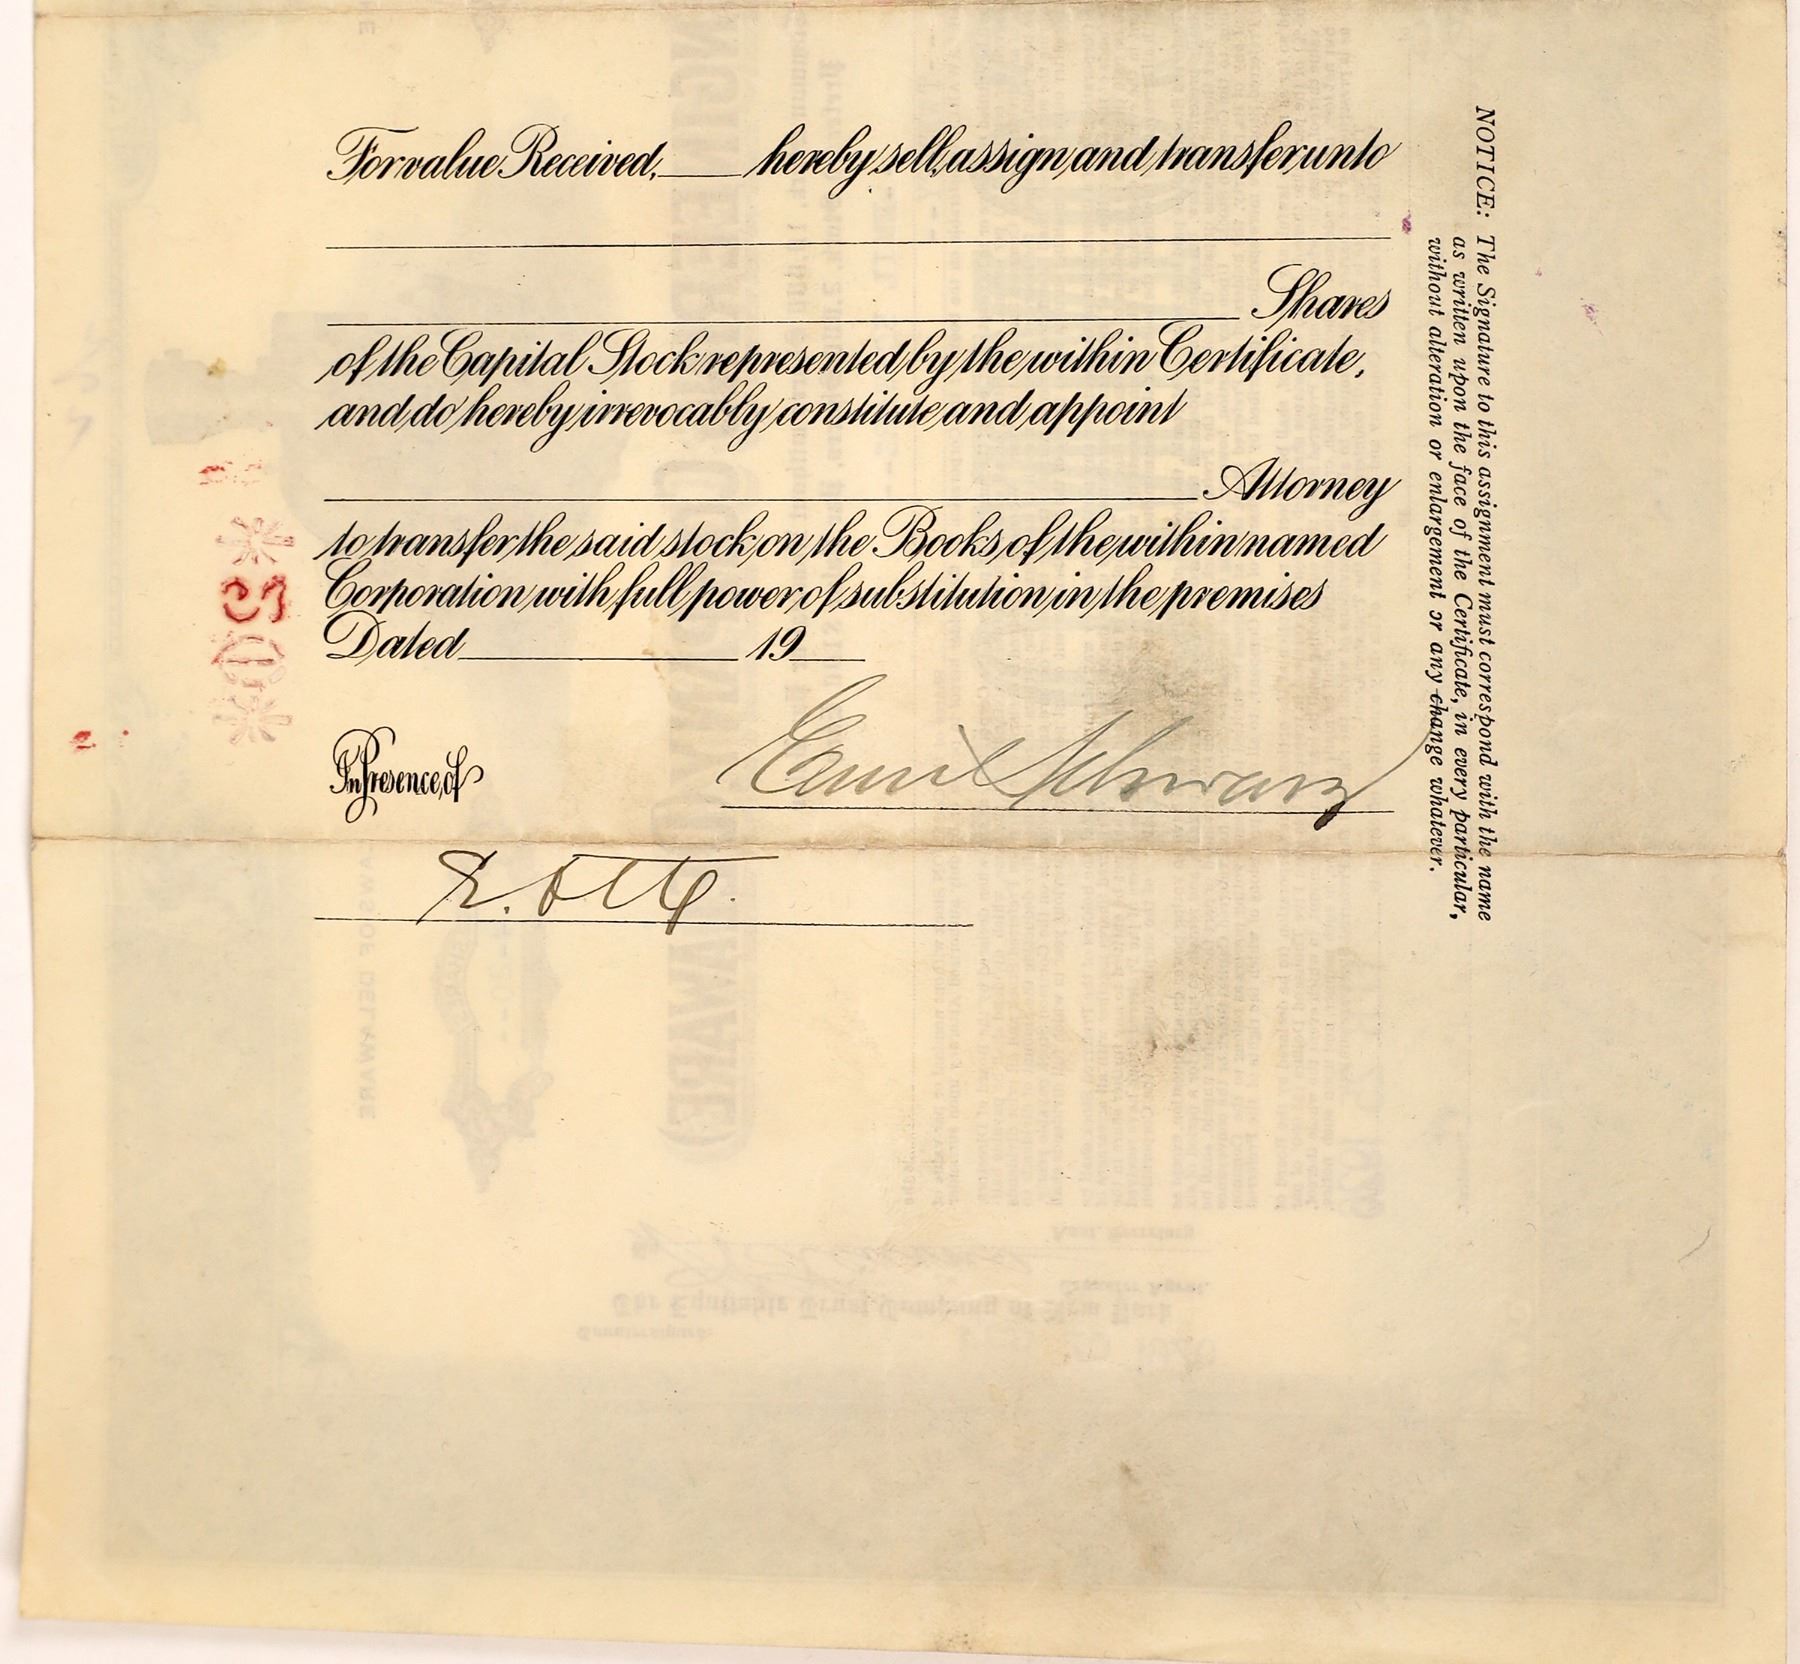 For value Received, ____ hereby sell, assign and transfer unto
Shares
of the Capital Stock represented by the within Certificate,
and do hereby irrevocably constitute and appoint
Attorney
to transfer the said stock on the Books of the within named
Corporation with full power of substitution in the premises
Dated ____ 19__
In Presence of
Emil Schwarz
E. Otte.
NOTICE: The Signature to this assignment must correspond with the name
as written upon the face of the Certificate, in every particular,
without alteration or enlargement or any change whatever.
LAWS OF DELAWARE
DELAWARE)
Asst. Secretary
Transfer Agent.
The Equitable Trust Company of New York
Countersigned: